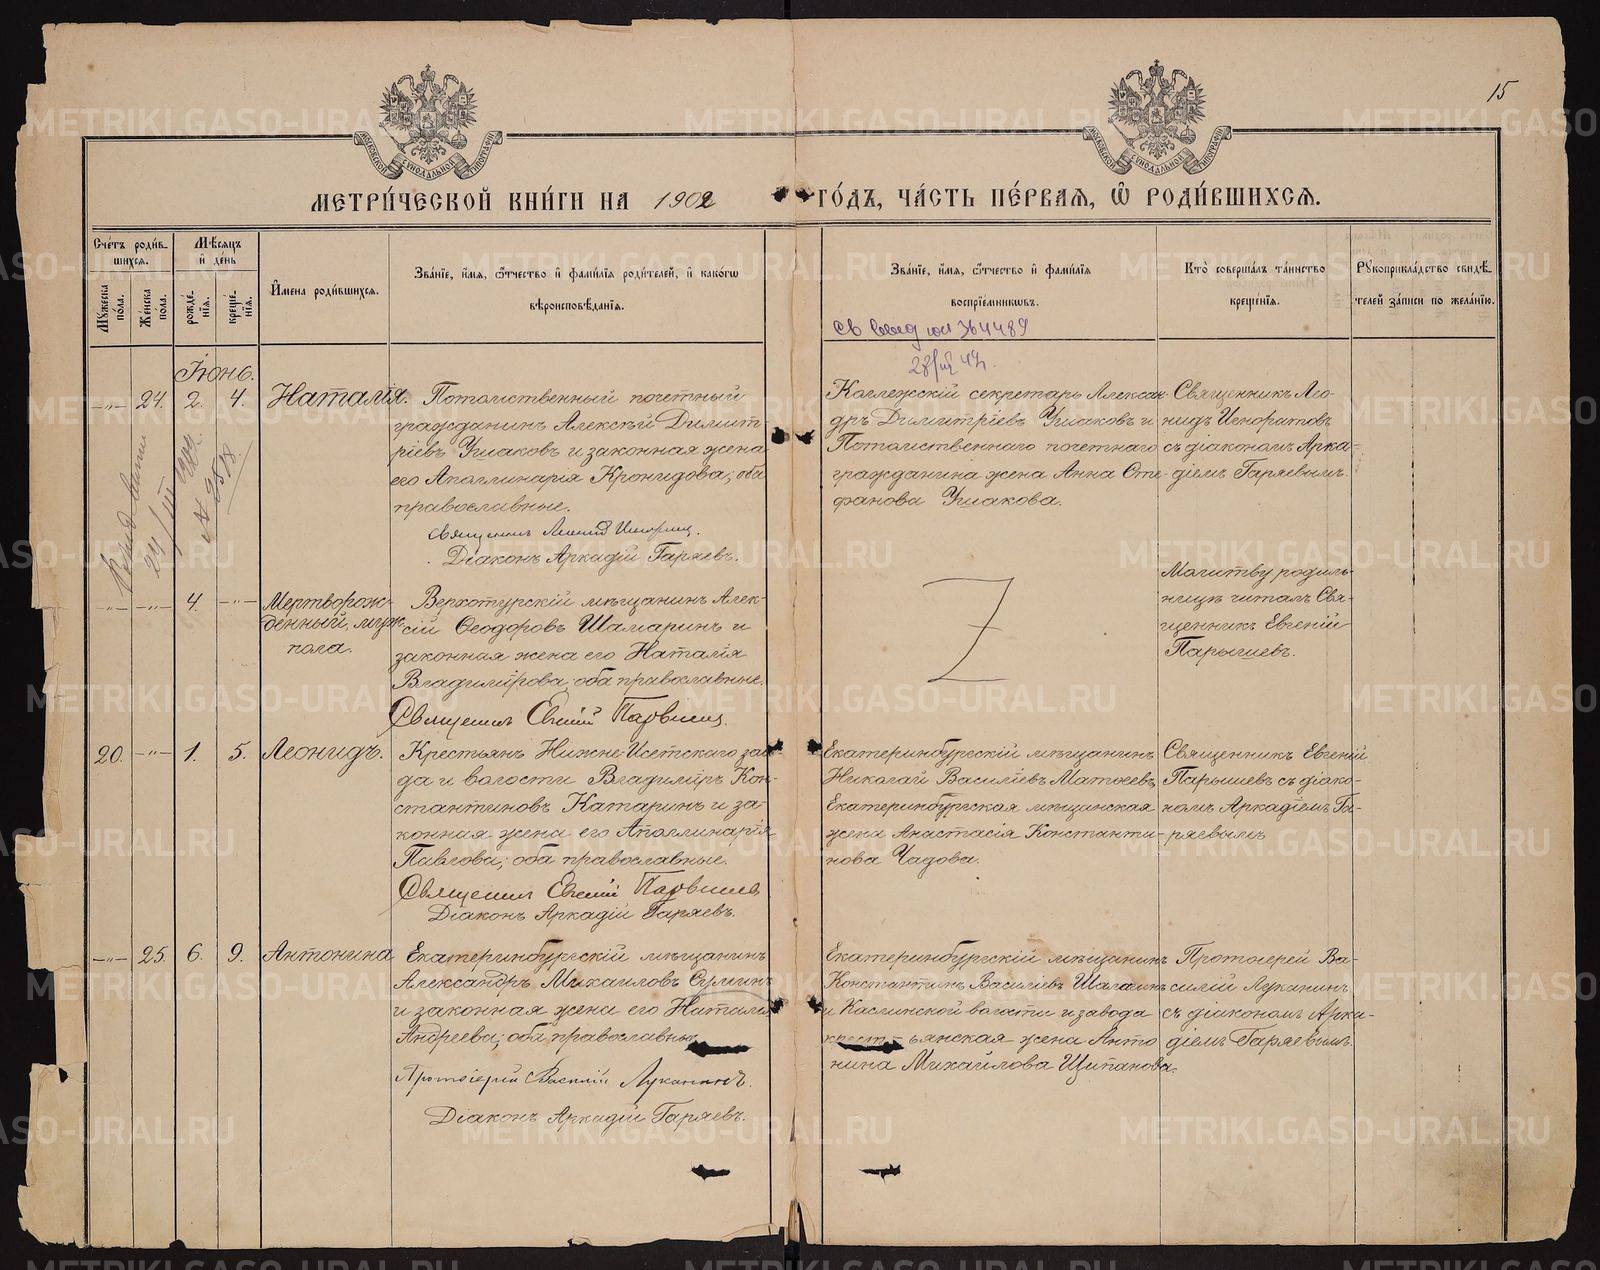 15
МЕТРИ́ЧЕСКОЙ КНИ́ГИ НА 1902 ГО́ДЪ, ЧА́СТЬ ПЕ́РВАЯ, Ѿ РОДИ́ВШИХСѦ.
Сче́тъ роди́вшихсѧ.
Мꙋжеска по́ла.
Же́нска по́ла.
Мѣ́сѧцъ и҆ де́нь
рожде́нїѧ.
креще́нїѧ.
И҆мена роди́вшихсѧ.
Зва́нїе, и҆́мѧ, ѻ҆́тчество и҆ фами́лїѧ роди́телей, и҆ како́гѡ
вѣроисповѣ́данїѧ.
Зва́нїе, и҆́мѧ, ѻ҆́тчество и҆ фами́лїѧ
воспрїе́мникѡвъ.
Кто̀ соверша́лъ та́инство
креще́нїѧ.
Рꙋкоприкла́дство свидѣ́-
телей за́писи по жела́нїю.
364489
Іюнь.
—„— 24. 2. 4. Наталія.
Потомственный почетный
гражданинъ Алексѣй Димит-
ріевъ Ушаковъ и законная жена
его Аполлинарія Кронидова, оба
православные.
Діаконъ Аркадій Гаряевъ.
Коллежскій секретарь Алексан-
дръ Димитріевъ Ушаковъ и
Потомственнаго почетнаго
гражданина жена Анна Сте-
фанова Ушакова.
Священникъ Лео-
нидъ Игноратовъ
съ діакономъ Арка-
діемъ Гаряевымъ.
—„— —„— 4. —„— Мертворож-
денный, муж.
пола.
Верхотурскій мѣщанинъ Алек-
сій Ѳеодоровъ Шамаринъ и
законная жена его Наталія
Владимірова, оба православные.
Священникъ Евгеній Парышевъ.
Z
Молитву родиль-
ницѣ читалъ Свя-
щенникъ Евгеній
Парышевъ.
20. —„— 1. 5. Леонидъ.
Крестьянъ Нижне-Исетскаго заво-
да и волости Владиміръ Кон-
стантиновъ Катаринъ и за-
конная жена его Аполлинарія
Павлова, оба православные.
Священникъ Евгеній Парышевъ
Діаконъ Аркадій Гаряевъ.
Екатеринбургскій мѣщанинъ
Николай Василіевъ Матѳеевъ,
Екатеринбургская мѣщанская
жена Анастасія Константи-
нова Чадова.
Священникъ Евгеній
Парышевъ съ діако-
номъ Аркадіемъ Га-
ряевымъ
—„— 25. 6. 9. Антонина
Екатеринбургскій мѣщанинъ
Александръ Михаиловъ Сулинъ
и законная жена его Наталія
Андреева, оба православны
Протоіерей Василій Луканинъ.
Діаконъ Аркадій Гаряевъ.
Екатеринбургскій мѣщанинъ
Константинъ Василіевъ Шалаинъ
и Каслинской волости и завода
крестьянская жена Анто-
нина Михайлова Щипанова.
Протоіерей Ва-
силій Луканинъ
съ діакономъ Арка-
діемъ Гаряевымъ.
METRIKI.GASO-URAL.RU